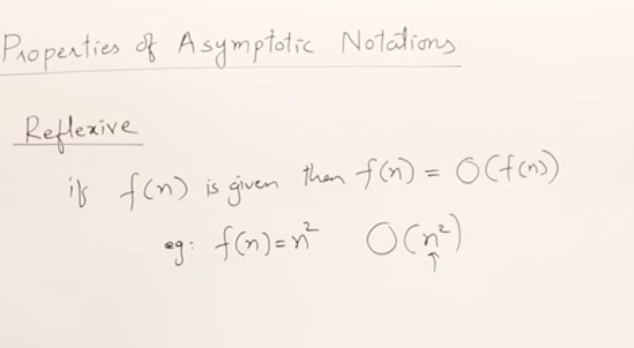 Properties of Asymptotic Notations
Reflexive
if f(n) is given then f(n) = O(f(n))
eg: f(n)=n² O(n²)
↑